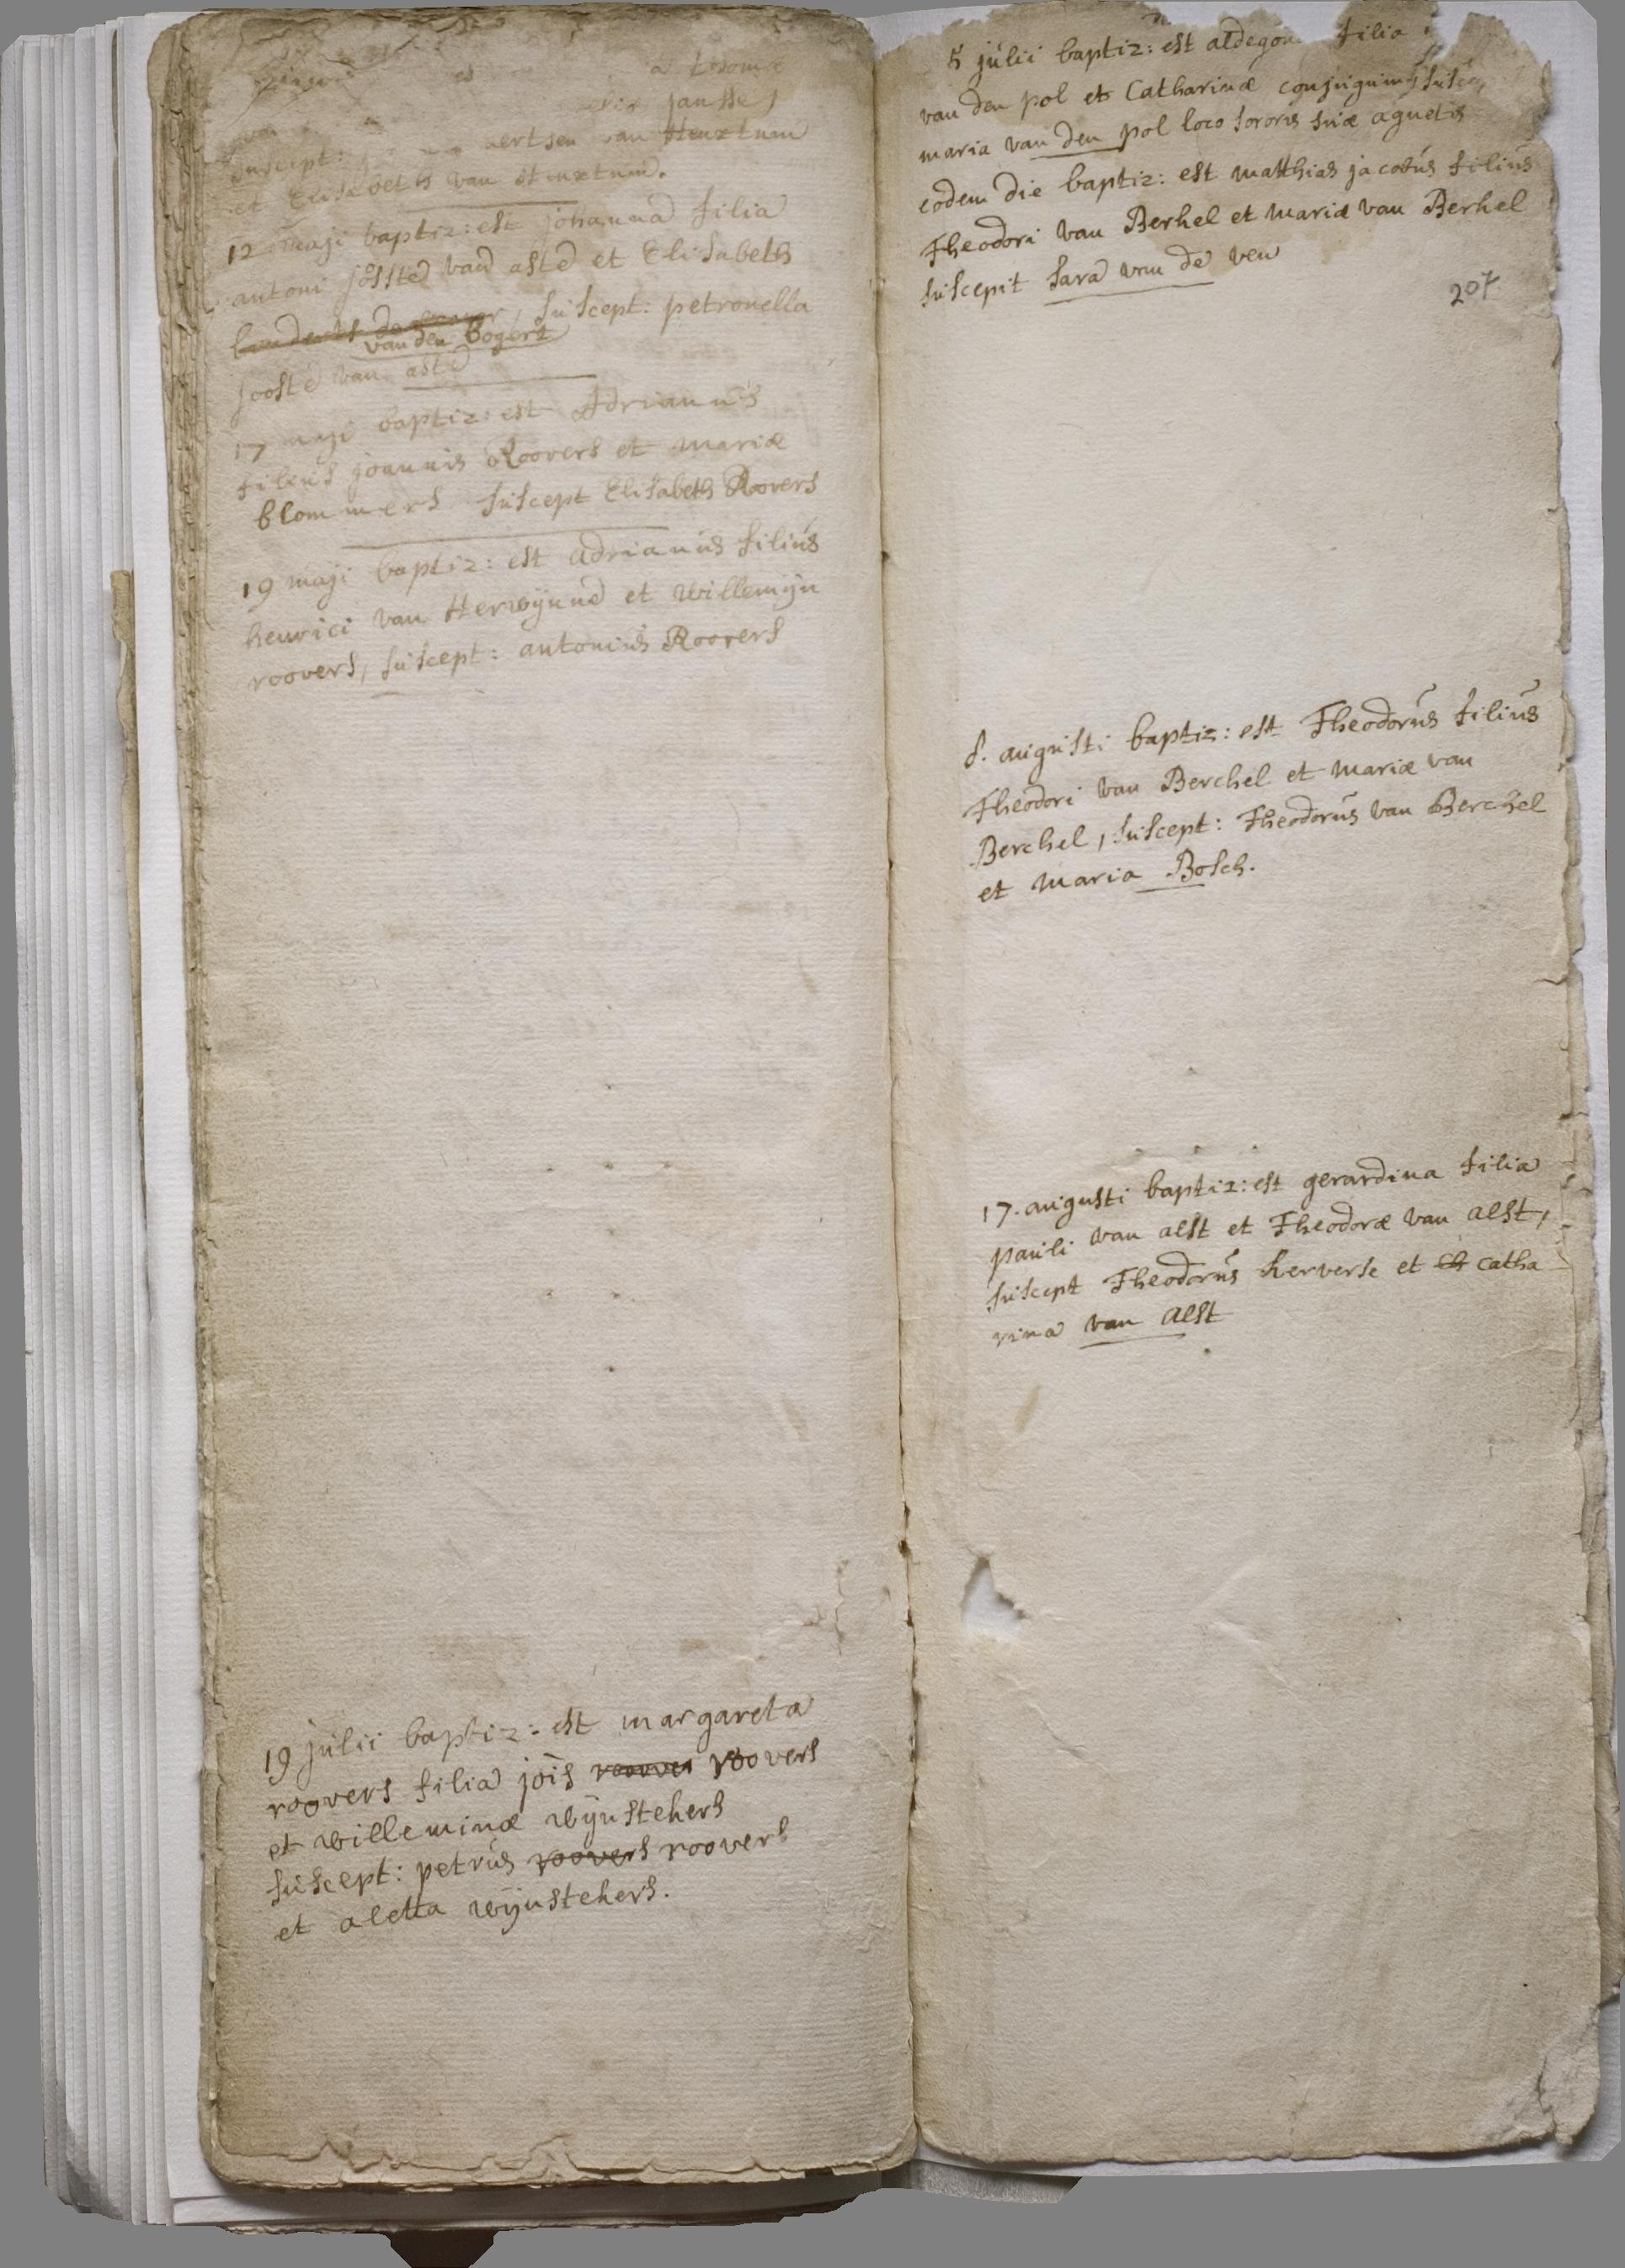 jansse
suscept: aertsen van Henxtum
et Elisabeth van Henxtum.
12 maji baptiz: est johanna filia
antoni joste van aste et Elisabeth
van den Bogert, suscept: petronella
jooste van aste
17 maji baptiz: est Adrianus
filius joannis Roovers et mariæ
blommers suscept Elisabeth Roovers
19 maji baptiz: est adrianus filius
henrici van Herwijnne et willemijn
roovers, suscept: antonius Roovers
19 julii baptiz: est margareta
roovers filia jois roover roovers
et willeminæ wijnstekers
suscept: petrus roovers roovers
et aletta wijnstekers.
5 julii baptiz: est aldegon filia
van den pol et Catharinæ conjugum,
maria van den pol loco sororis suæ agnetis
eodem die baptiz: est matthias jacobus filius
Theodori van Berkel et mariæ van Berkel
suscepit sara van de ven
207.
8. augusti baptiz: est Theodorus filius
Theodori van Berchel et mariæ van
Berchel, suscept: Theodorus van Berchel
et maria Bosch.
17. augusti baptiz: est gerardina filia
pauli van aelst et Theodoræ van aelst,
suscept Theodorus kerverse et catha
rina van aelst